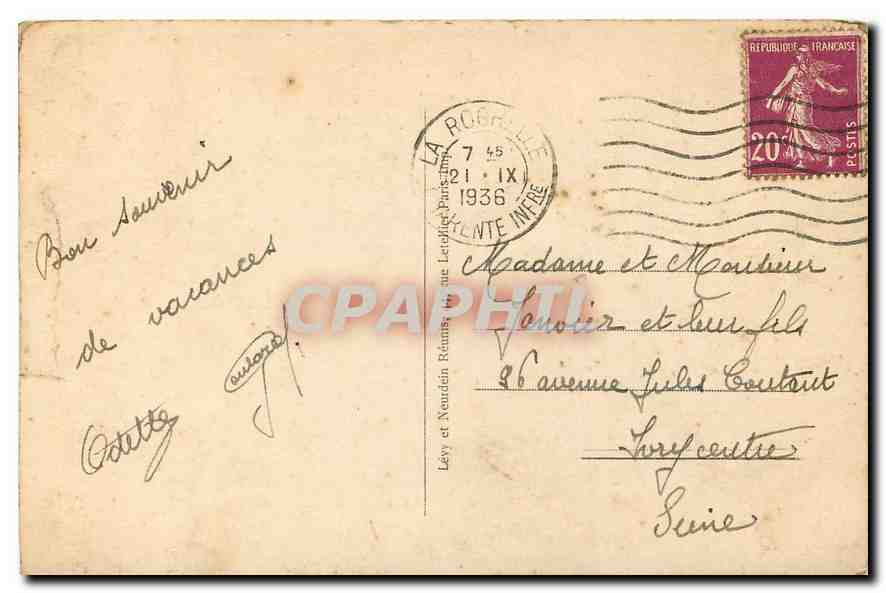 Bon souvenir
de vacances
Odette
Lévy et Neurdein Réunis, rue Letellier Paris Imp.
LA ROCHELLE
7 45
21 · IX
1936
CHARENTE INFRE
REPUBLIQUE FRANÇAISE
20c
POSTES
Madame et Monsieur
Janvier et leur fils
26 avenue Jules Coutant
Ivry centre
Seine
CPAPHIL